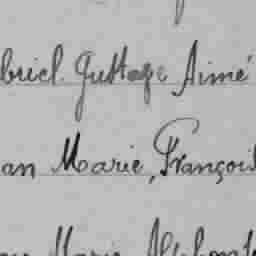 briel Gustave Aimé
an Marie, François
Marie Alphons